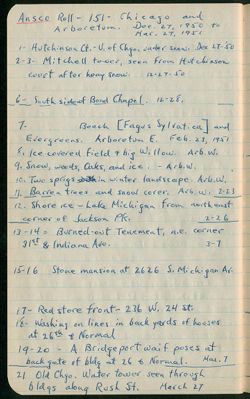 Ansco Roll - 151 - Chicago and
Arboretum. Dec. 27, 1950 to
Mar. 27, 1951
1 - Hutchinson Ct. - U. of Chgo, under snow. Dec 27-50
2-3 - Mitchell tower, seen from Hutchinson
court after heavy snow. 12-27-50
6 - South side of Bond Chapel. 12-28.
7 - Beech [Fagus Sylvatica] and
Evergreens. Arboretum E. Feb. 23, 1951
8. Ice covered field & big Willow. Arb. W.
9. Snow, weeds, Oaks, and ice. - Arb. W.
10. Two sprigs in winter landscape. Arb. W.
11. Barren trees and snow cover. Arb. W. 2-23
12. Shore ice - Lake Michigan from northeast
corner of Jackson Pk. 2-26
13-14 = Burned-out Tenement, n.e. corner
31st & Indiana Ave. 3-7
15-16 Stone mansion at 2626 S. Michigan Av.
17 - Red store front - 236 W. 24 St.
18 - Washing on lines in back yards of houses
at 26th & Normal
19-20 - A Bridgeport waif poses at
back gate of bldg at 26 & Normal. Mar. 7
21 Old Chgo. Water tower seen through
bldgs along Rush St. March 27